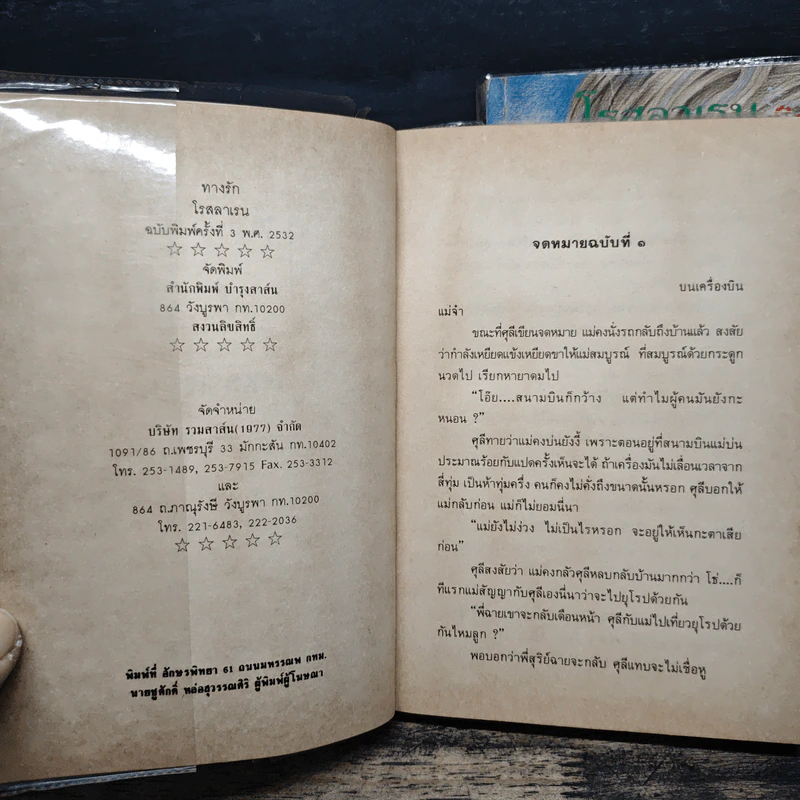 ทางรัก
โรสลาเรน
ฉบับพิมพ์ครั้งที่ 3 พ.ศ. 2532
☆ ☆ ☆ ☆ ☆
จัดพิมพ์
สำนักพิมพ์ บำรุงสาส์น
864 วังบูรพา กท.10200
สงวนลิขสิทธิ์
☆ ☆ ☆ ☆ ☆
จัดจำหน่าย
บริษัท รวมสาส์น(1977) จำกัด
1091/86 ถ.เพชรบุรี 33 มักกะสัน กท.10402
โทร. 253-1489, 253-7915 Fax. 253-3312
และ
864 ถ.ภาณุรังษี วังบูรพา กท.10200
โทร. 221-6483, 222-2036
☆ ☆ ☆ ☆ ☆
พิมพ์ที่ อักษรพิทยา 61 ถนนมหรรณพ กทม.
นายชูศักดิ์ หล่อสุวรรณศิริ ผู้พิมพ์ผู้โฆษณา
โรสลาเรน
จดหมายฉบับที่ ๑
บนเครื่องบิน
แม่จ๋า
ขณะที่ศุลีเขียนจดหมาย แม่คงนั่งรถกลับถึงบ้านแล้ว สงสัย
ว่ากำลังเหยียดแข้งเหยียดขาให้แม่สมบูรณ์ ที่สมบูรณ์ด้วยกระดูก
นวดไป เรียกหายาดมไป
“โอ๊ย....สนามบินก็กว้าง แต่ทำไมผู้คนมันยังกะ
หนอน ?”
ศุลีทายว่าแม่คงบ่นยังงี้ เพราะตอนอยู่ที่สนามบินแม่บ่น
ประมาณร้อยกับแปดครั้งเห็นจะได้ ถ้าเครื่องมันไม่เลื่อนเวลาจาก
สี่ทุ่ม เป็นห้าทุ่มครึ่ง คนก็คงไม่คั่งถึงขนาดนั้นหรอก ศุลีบอกให้
แม่กลับก่อน แม่ก็ไม่ยอมนี่นา
“แม่ยังไม่ง่วง ไม่เป็นไรหรอก จะอยู่ให้เห็นกะตาเสีย
ก่อน”
ศุลีสงสัยว่า แม่คงกลัวศุลีหลบกลับบ้านมากกว่า โธ่....ก็
ทีแรกแม่สัญญากับศุลีเองนี่นาว่าจะไปยุโรปด้วยกัน
“พี่ฉายเขาจะกลับเดือนหน้า ศุลีกับแม่ไปเที่ยวยุโรปด้วย
กันไหมลูก ?”
พอบอกว่าพี่สุริย์ฉายจะกลับ ศุลีแทบจะไม่เชื่อหู